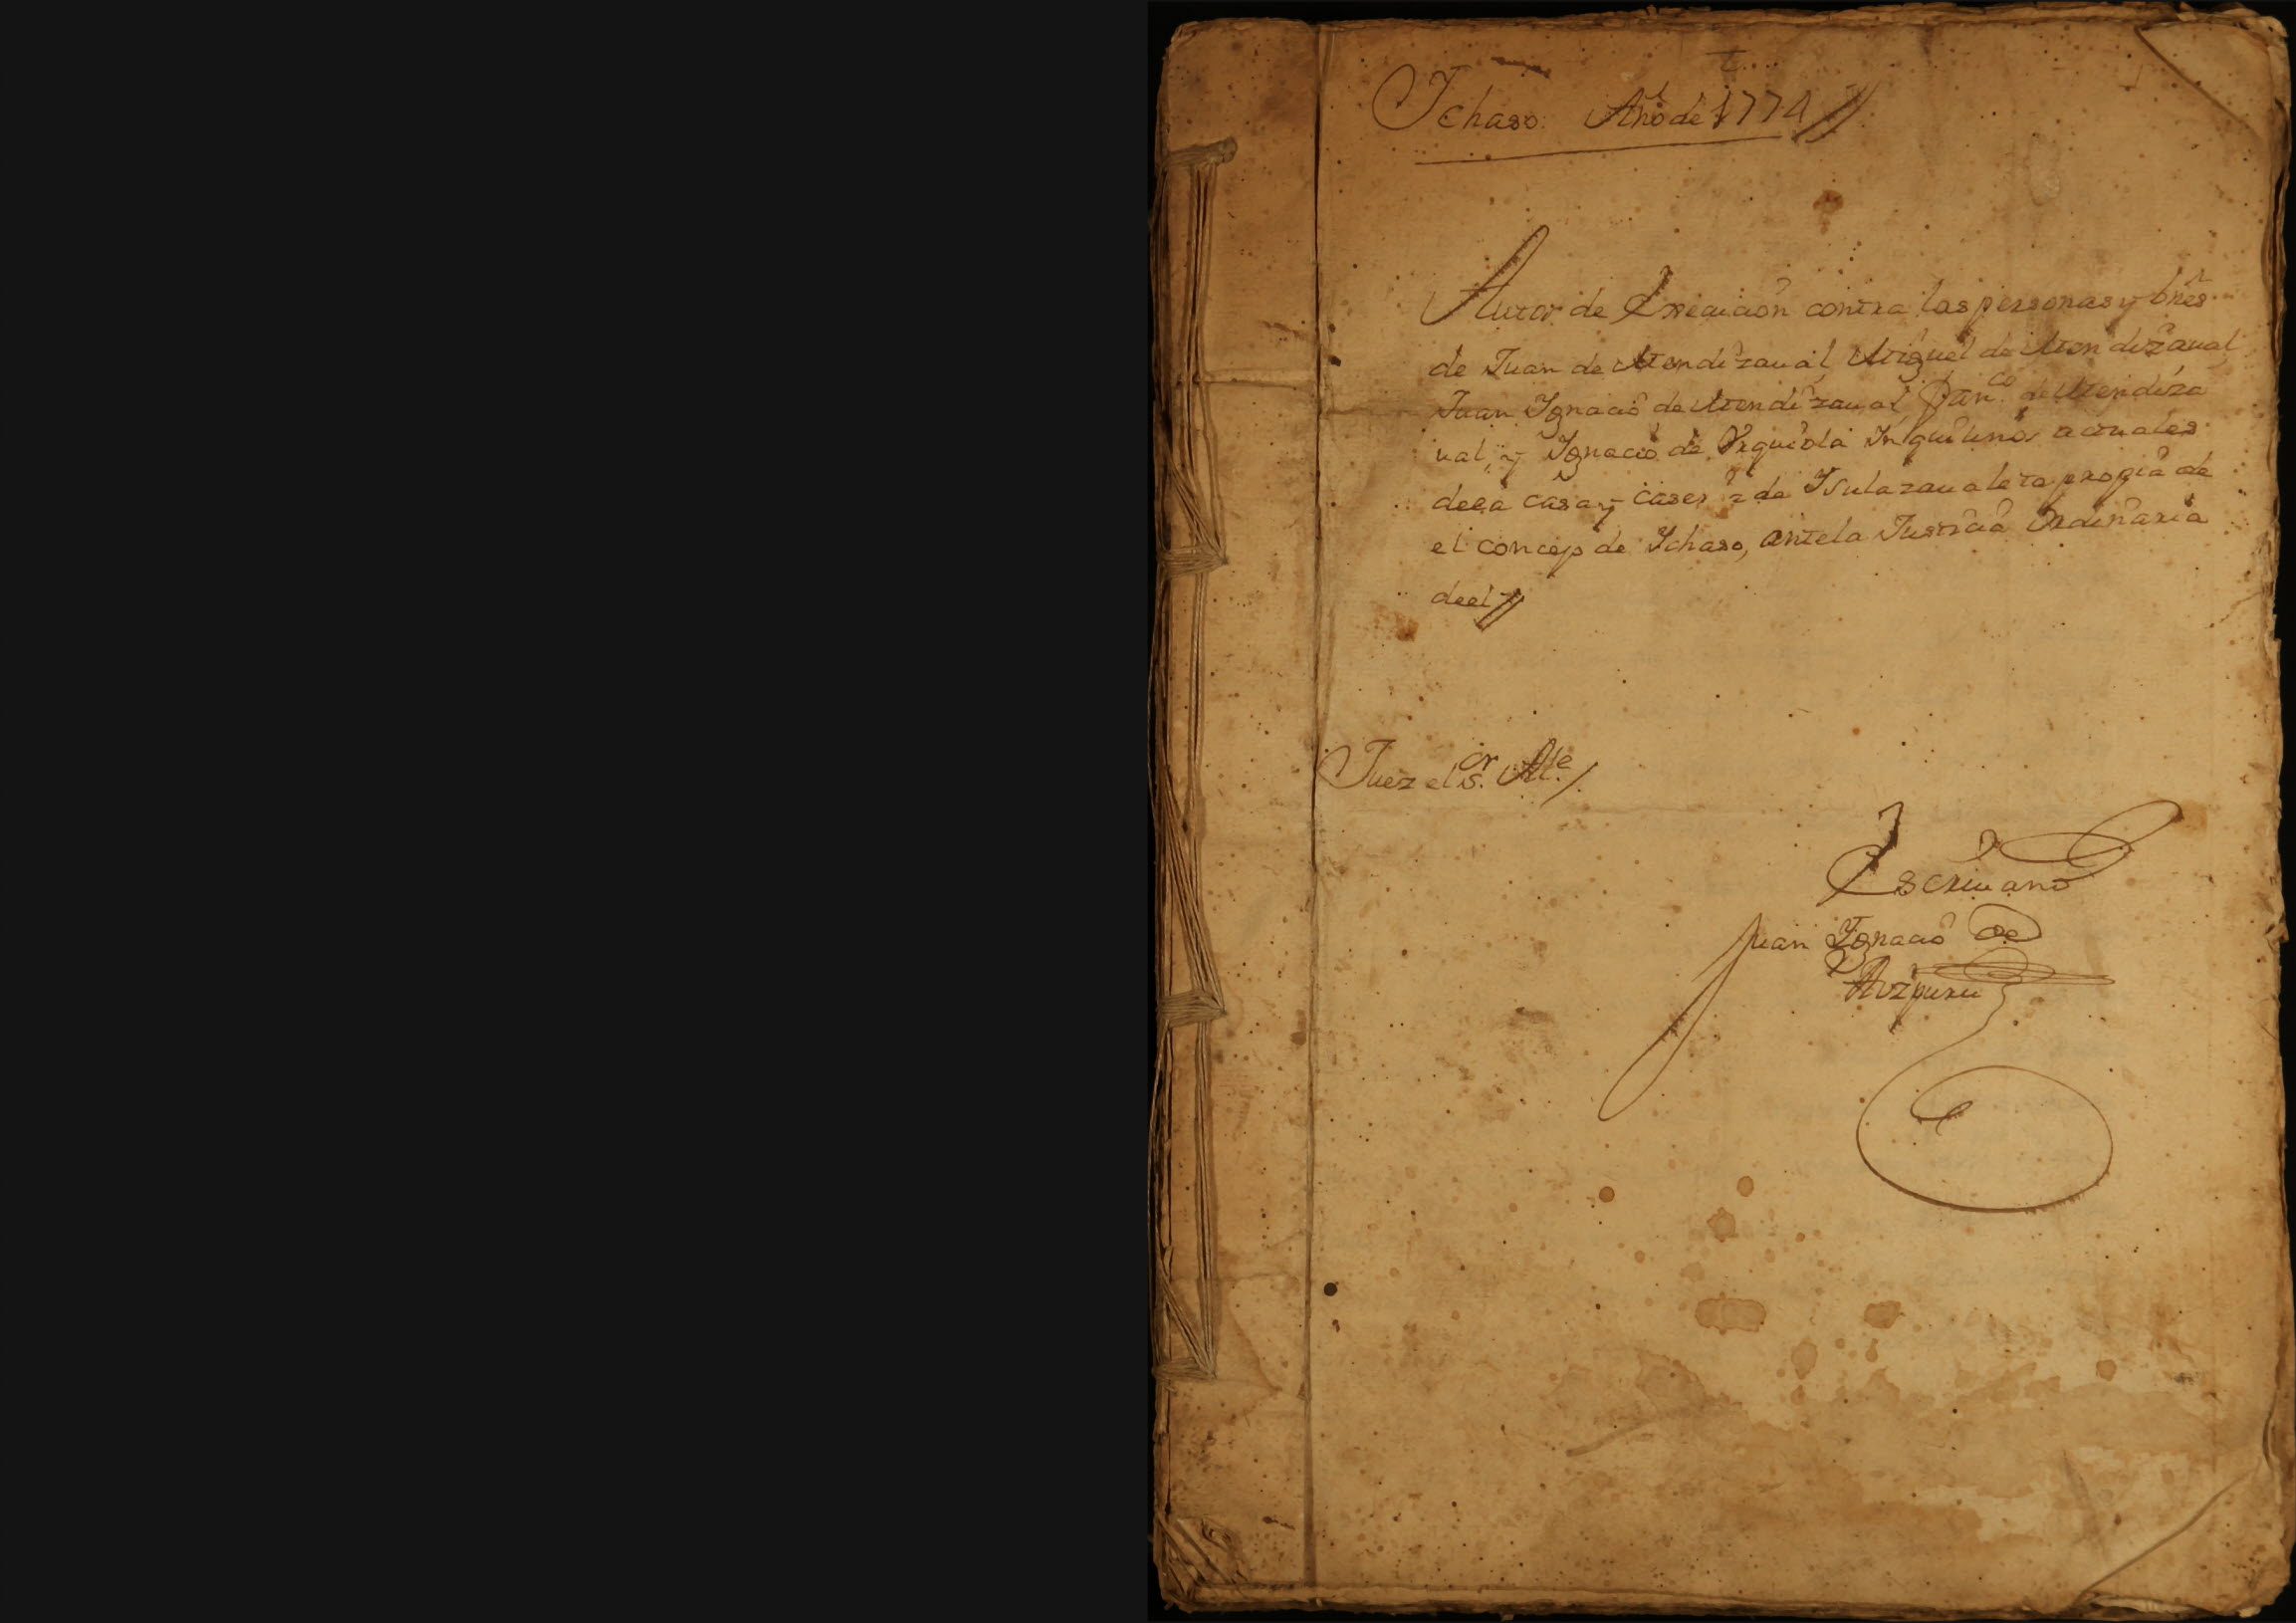 Ychaso. Año de 1774
Autos de Execucion contra las personas y bñes
de Juan de Mendizaual, Miguel de Mendizaual,
Juan Ygnacio de Mendizaual, Fran.co de Mendiza
ual, y Ygnacio de Vrquiola Ynquilinos actuales
dela casa y Caser.a de Ysulazaualeta propia de
el concejo de Ychaso, ante la Justicia Ordinaria
deel
Juez el S.or Al.e
Escriuano
Juan Ygnacio de
Aizpuru